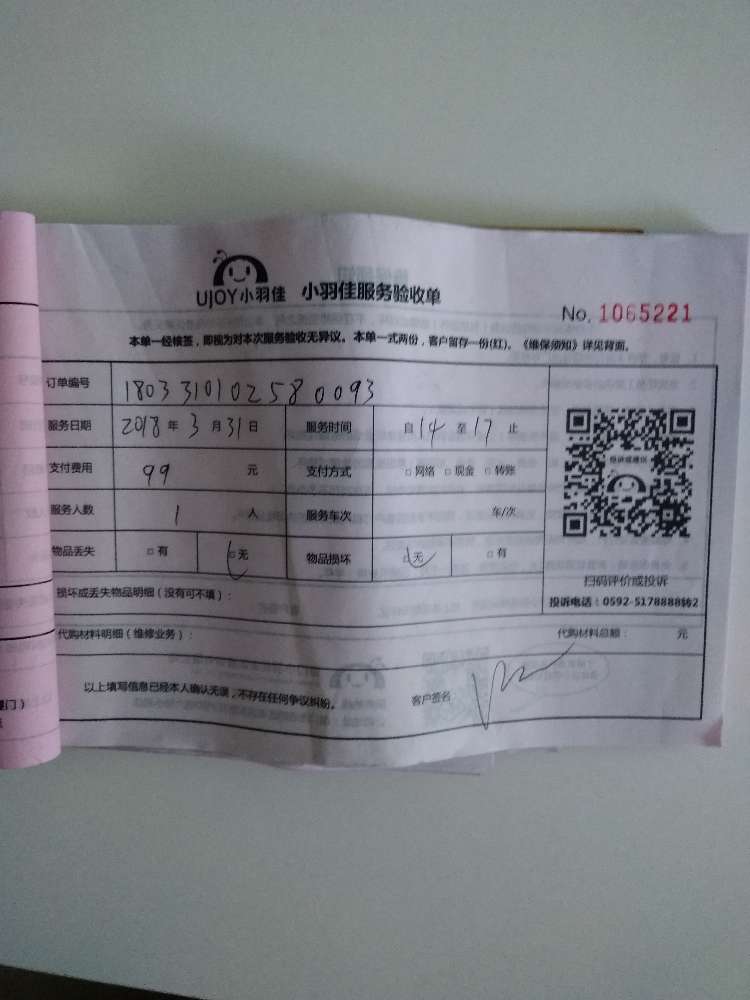 UJOY小羽佳 小羽佳服务验收单
No. 1065221
本单一经核签，即视为对本次服务验收无异议。本单一式两份，客户留存一份(红)。《维保须知》详见背面。
订单编号 1803310102580093
服务日期 2018年3月31日 服务时间 自14至17止
支付费用 99 元 支付方式 □网络 □现金 □转账
服务人数 1 人 服务车次 车/次
物品丢失 □有 □无 物品损坏 □无 □有
投诉或建议
扫码评价或投诉
投诉电话：0592-5178888转2
损坏或丢失物品明细（没有可不填）：
代购材料明细（维修业务）： 代购材料总额： 元
以上填写信息已经本人确认无误，不存在任何争议纠纷。 客户签名
门）